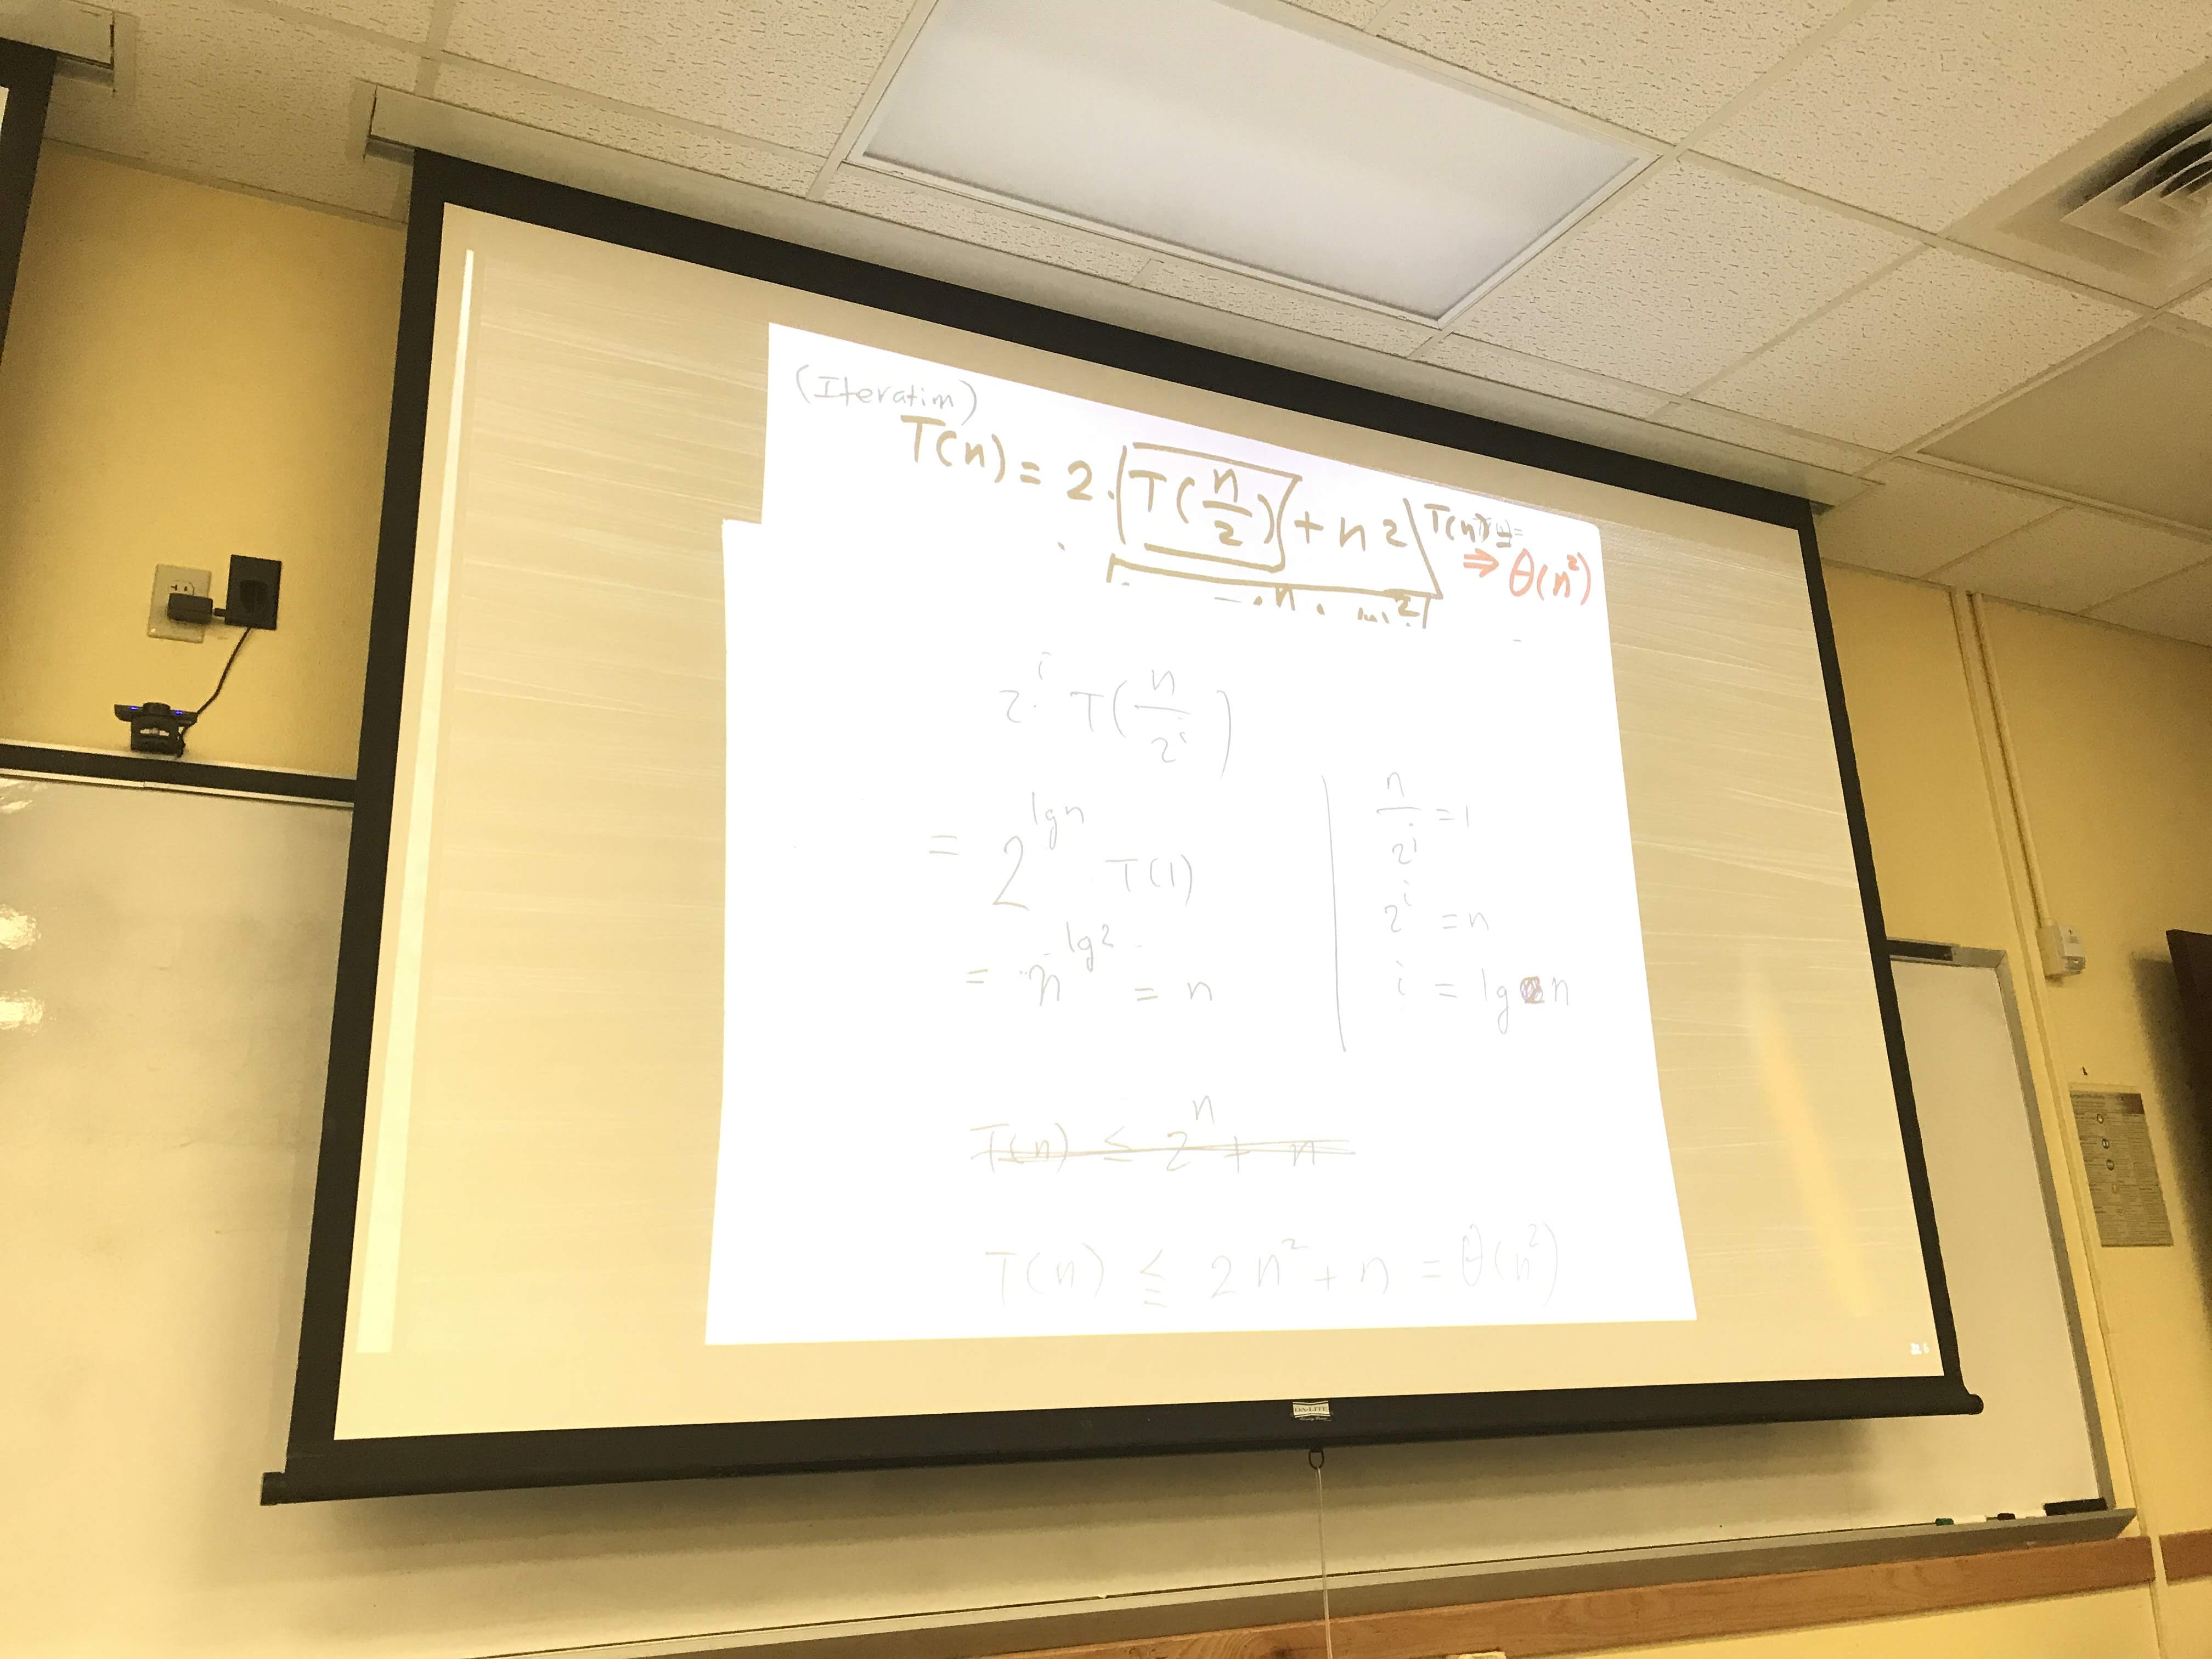 (Iteration)
T(n) = 2·T(n/2) + n2
T(n) =
⇒ θ(n²)
2^i T(n/2^i)
= 2^lgn T(1)
= n^lg2 = n
n/2^i = 1
2^i = n
i = lg n
T(n) ≤ 2^n + n
T(n) ≤ 2n² + n = θ(n²)
DA-LITE